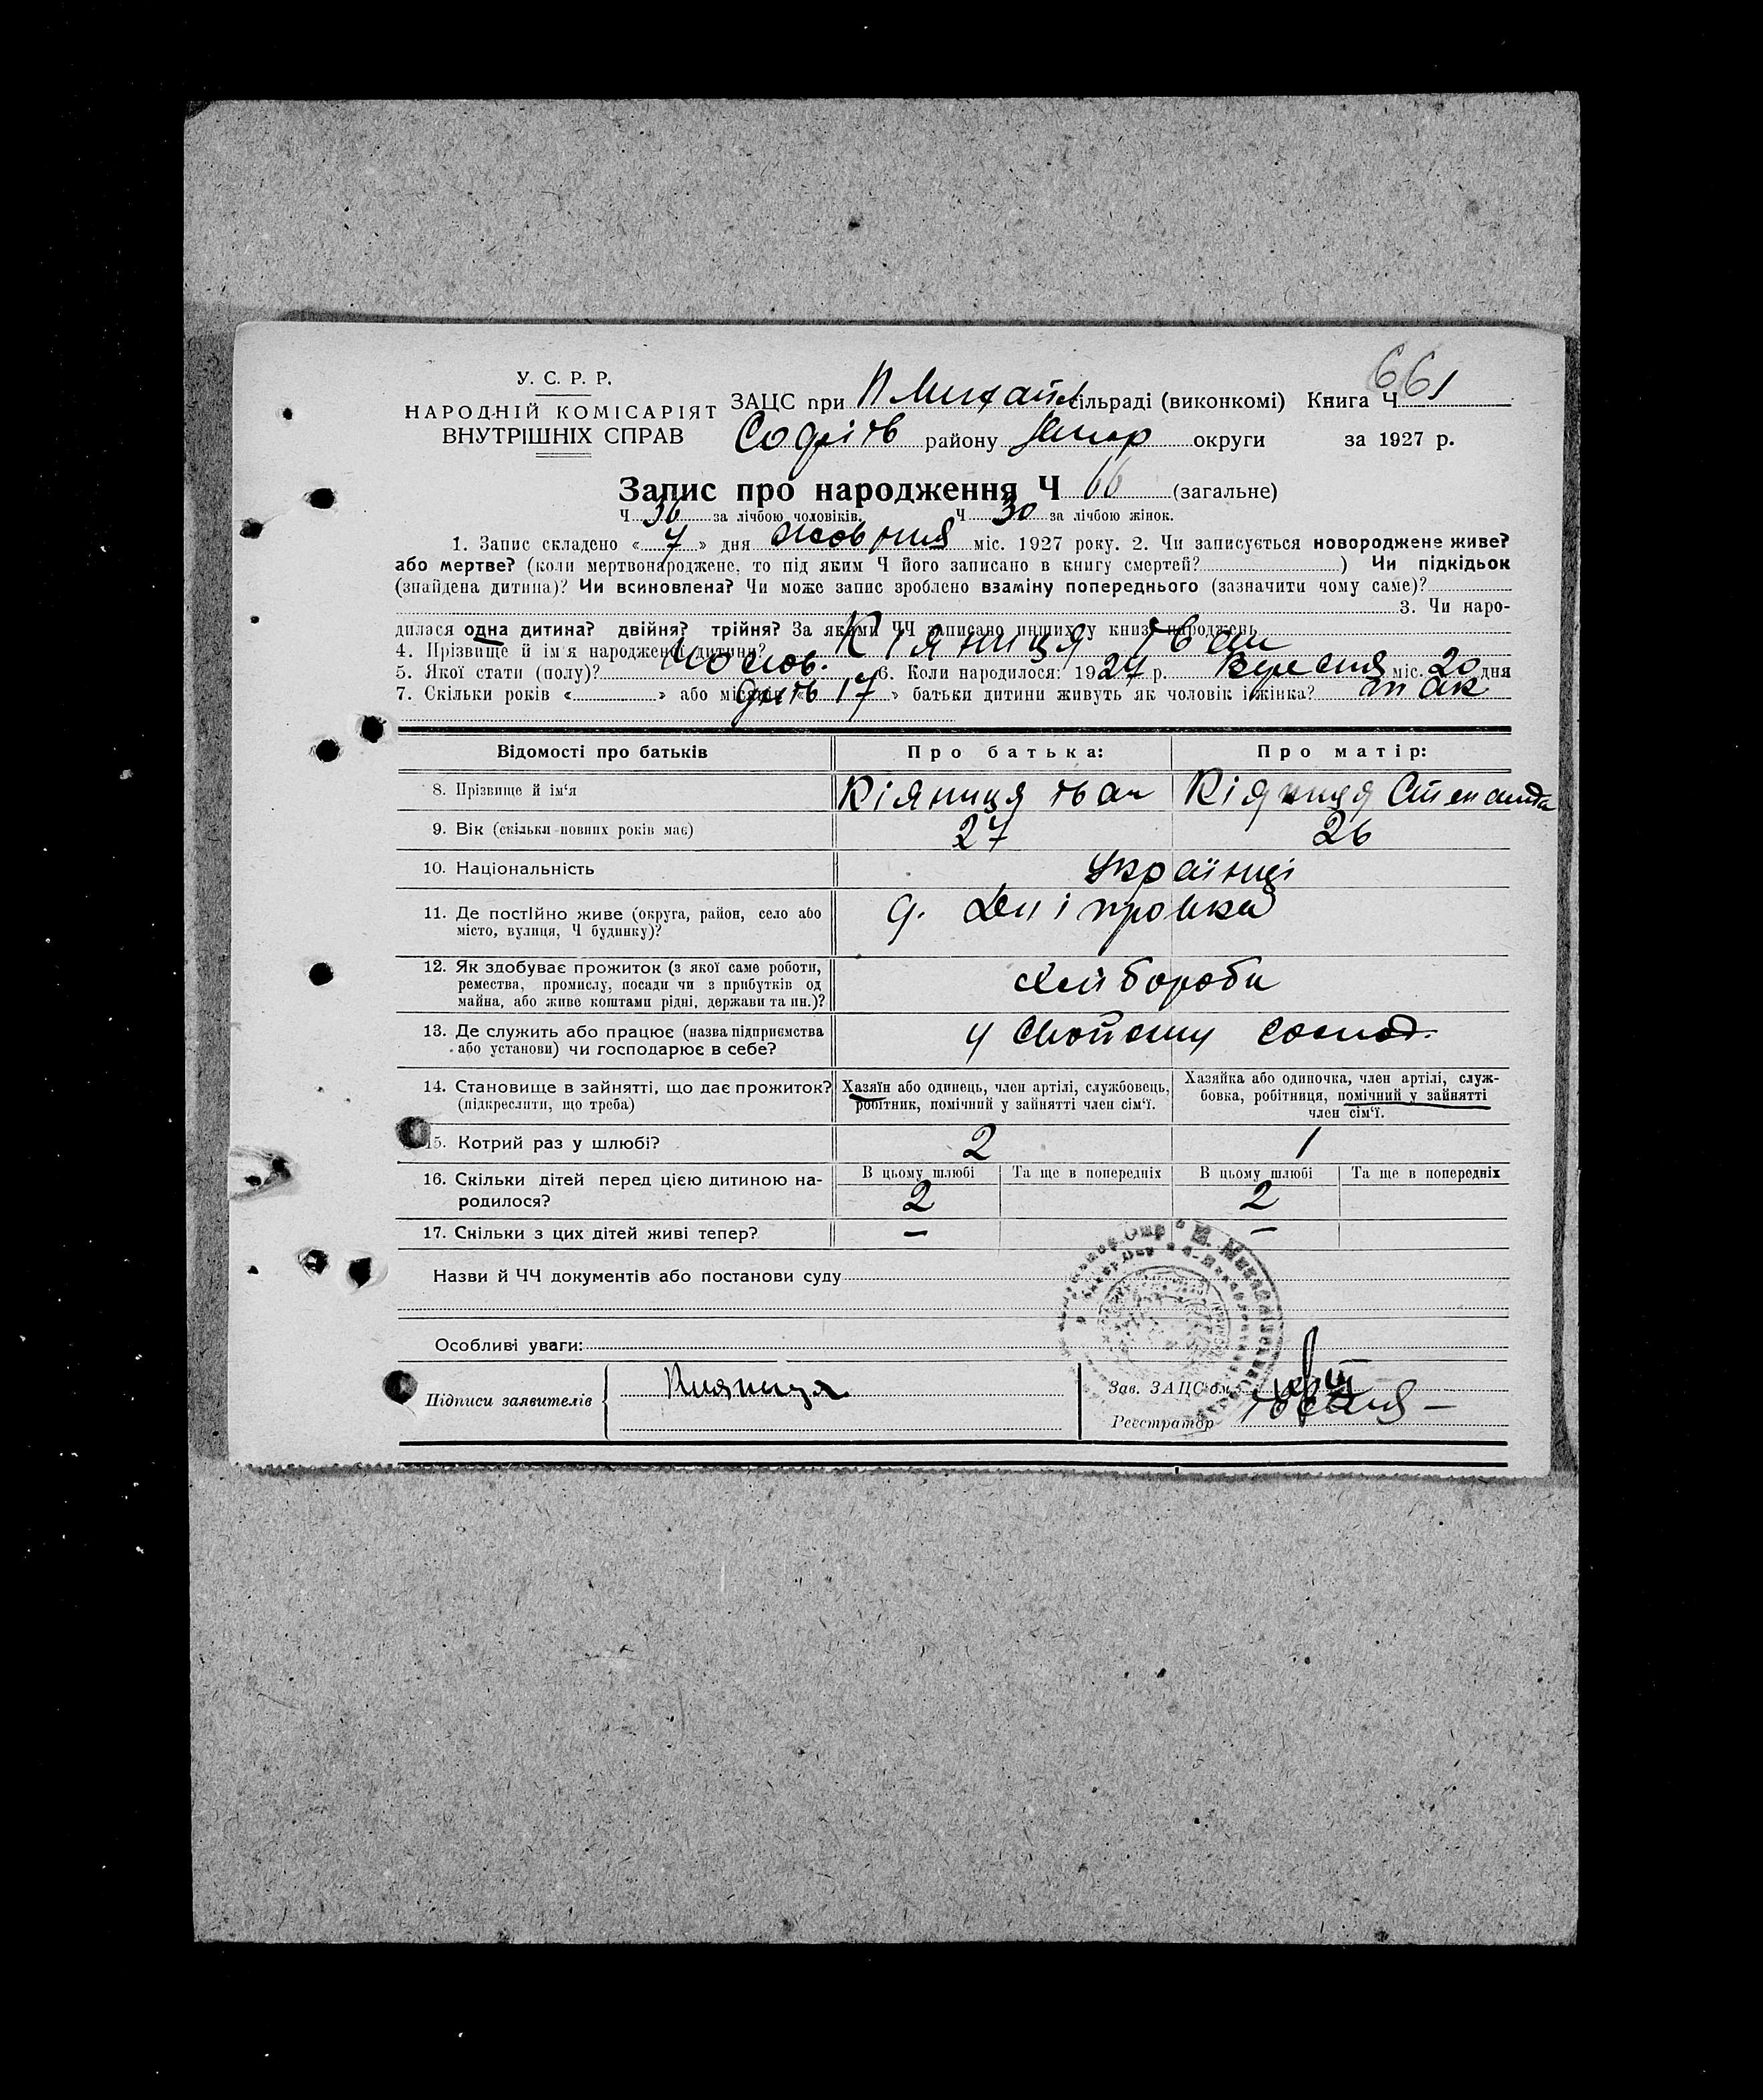 661
У. С. Р. Р.
НАРОДНІЙ КОМІСАРІЯТ
ВНУТРІШНІХ СПРАВ
ЗАЦС при сільраді (виконкомі) Книга Ч
Софіїв району округи за 1927 р.
Запис про народження Ч 66 (загальне)
Ч 36 за лічбою чоловіків. Ч 30 за лічбою жінок.
1. Запис складено « 7 » дня жовтня міс. 1927 року. 2. Чи записується новороджене живе?
або мертве? (коли мертвонароджене, то під яким Ч його записано в книгу смертей? ) Чи підкідьок
(знайдена дитина)? Чи всиновлена? Чи може запис зроблено взаміну попереднього (зазначити чому саме)?
3. Чи наро-
дилася одна дитина? двійня? трійня? За якими ЧЧ записано инших у книзі народжень
4. Прізвище й ім'я народженої дитини? Кіяниця Іван
5. Якої стати (полу)? чолов. 6. Коли народилося: 1927 р. Вересня міс. 20 дня
7. Скільки років « » або місяців « 17 » батьки дитини живуть як чоловік і жінка? так
Відомості про батьків Про батька: Про матір:
8. Прізвище й ім'я Кіяниця Іван Кіяниця Степанида
9. Вік (скільки повних років має) 27 26
10. Національність Українці
11. Де постійно живе (округа, район, село або
місто, вулиця, Ч будинку)? Дніпровка
12. Як здобуває прожиток (з якої саме роботи,
ремества, промислу, посади чи з прибутків од
майна, або живе коштами рідні, держави та ин.)? Хлібороби
13. Де служить або працює (назва підприємства
або установи) чи господарює в себе? у свойому господ.
14. Становище в зайнятті, що дає прожиток?
(підкреслити, що треба)
Хазяїн або одинець, член артілі, службовець,
робітник, помічний у зайнятті член сім'ї.
Хазяйка або одиночка, член артілі, служ-
бовка, робітниця, помічний у зайнятті
член сім'ї.
15. Котрий раз у шлюбі? 2 1
16. Скільки дітей перед цією дитиною на-
родилося?
В цьому шлюбі Та ще в попередніх В цьому шлюбі Та ще в попередніх
2 2
17. Скільки з цих дітей живі тепер? – –
Назви й ЧЧ документів або постанови суду
Особливі уваги:
Підписи заявителів Кияница
Зав. ЗАЦС'ом
Реєстратор